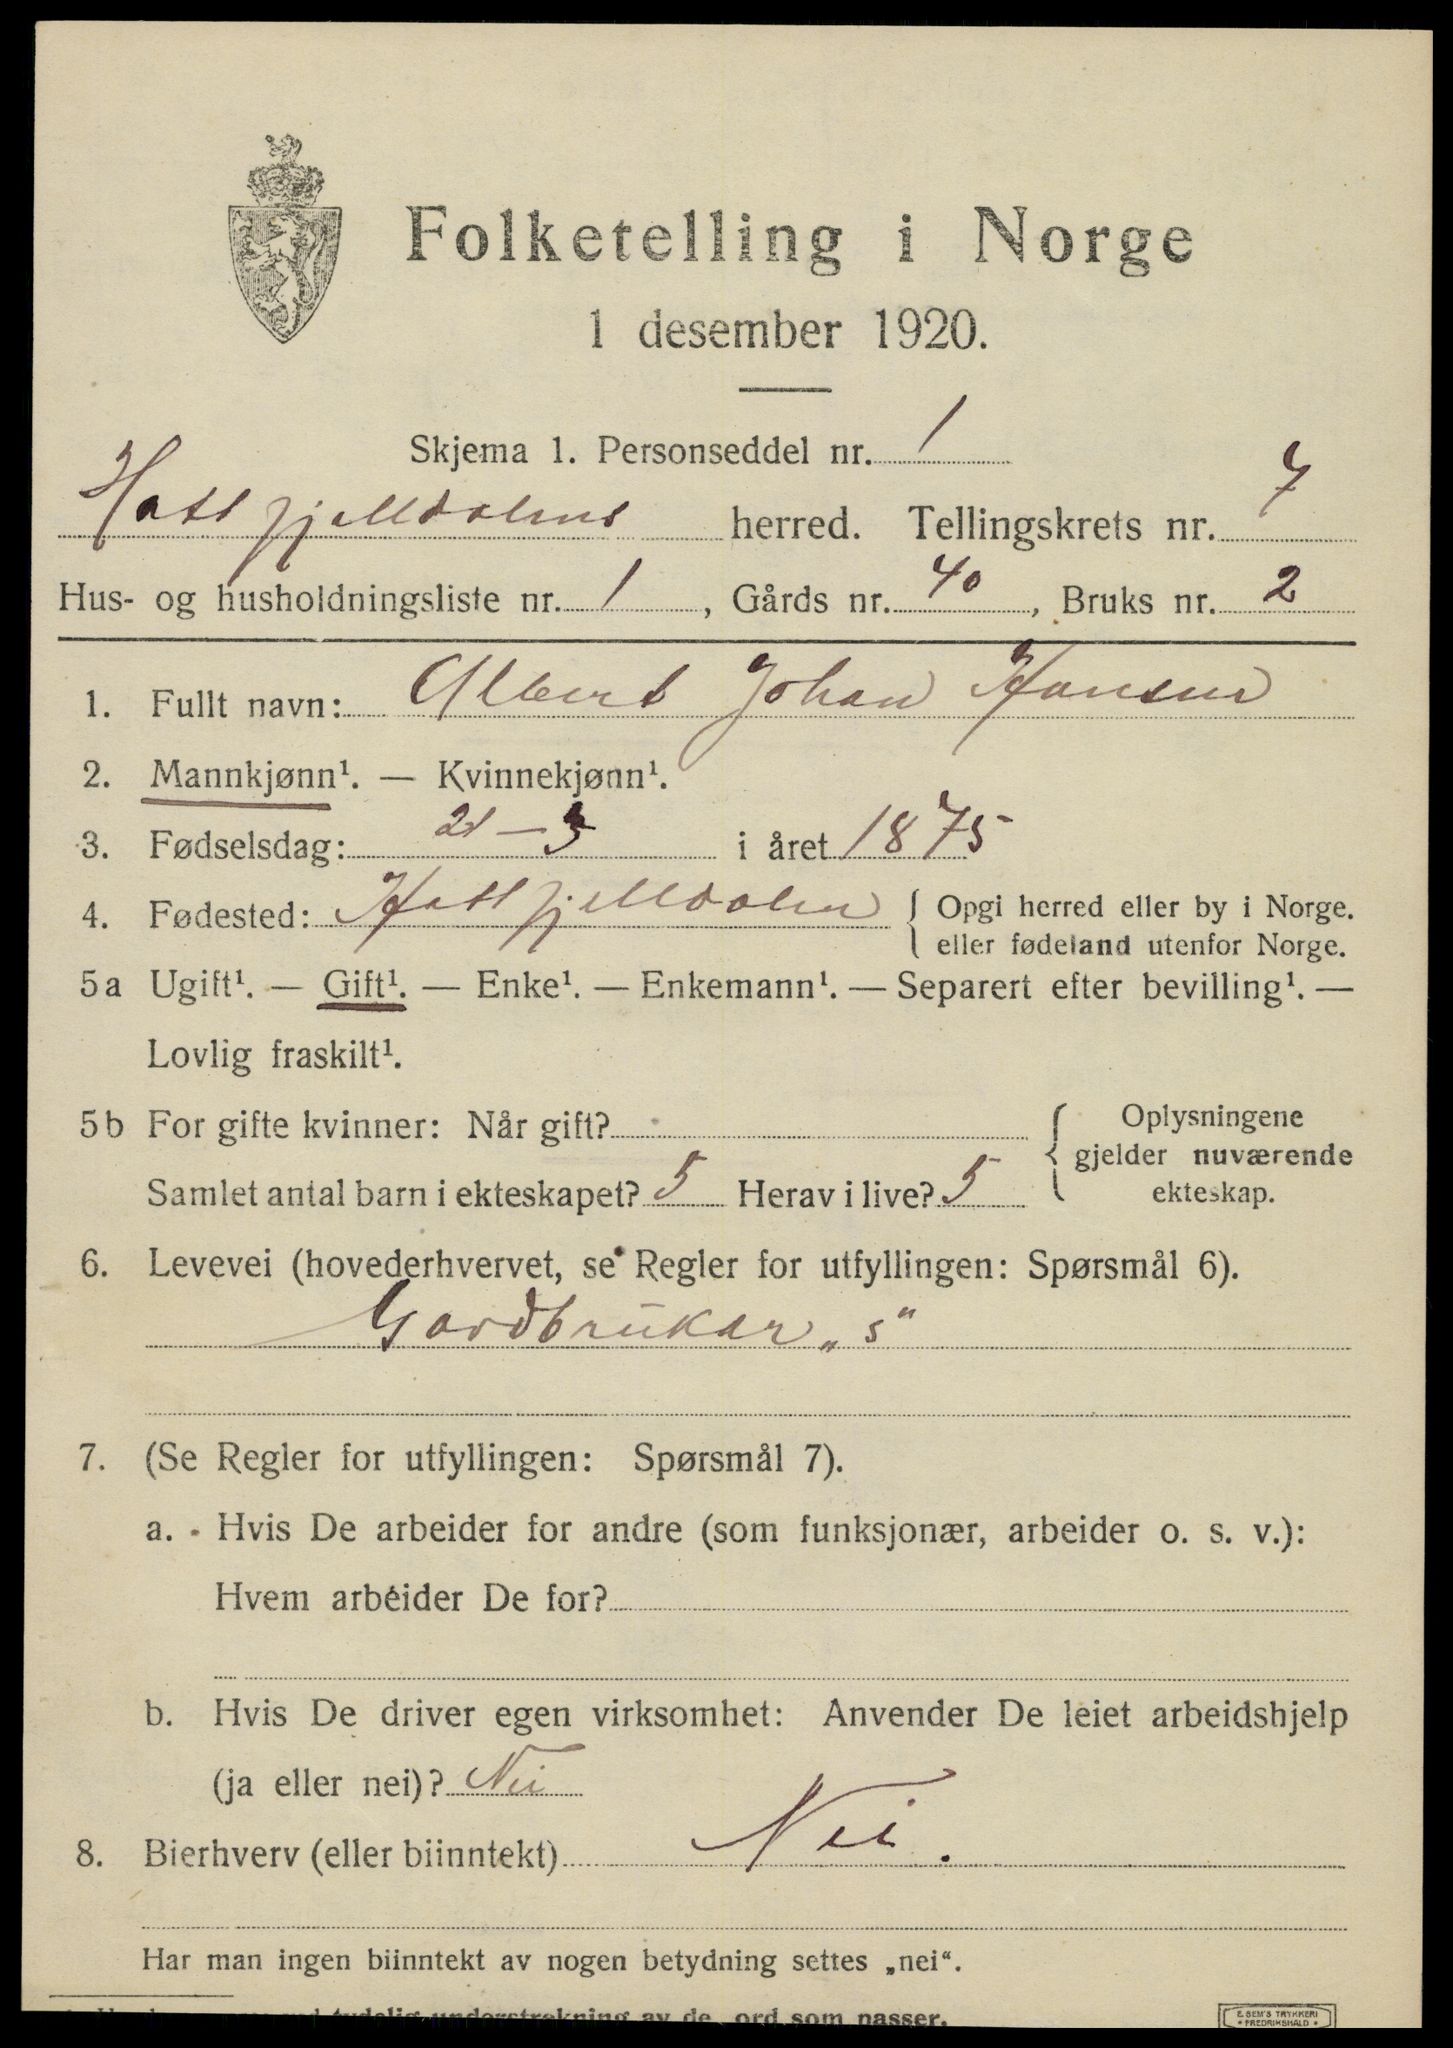 Folketelling i Norge
1 desember 1920.
Skjema 1. Personseddel nr. 1
Hattfjelldalens herred. Tellingskrets nr. 7
Hus- og husholdningsliste nr. 1, Gårds nr. 40, Bruks nr. 2
1. Fullt navn: Albert Johan Hansen
2. Mannkjønn¹. — Kvinnekjønn¹.
3. Fødselsdag: 21 – 3 i året 1875
4. Fødested: Hattfjelldalen { Opgi herred eller by i Norge.
eller fødeland utenfor Norge.
5a Ugift¹. — Gift¹. — Enke¹. — Enkemann¹. — Separert efter bevilling¹. —
Lovlig fraskilt¹.
5b For gifte kvinner: Når gift?
Samlet antal barn i ekteskapet? 5 Herav i live? 5
{ Oplysningene
gjelder nuværende
ekteskap.
6. Levevei (hovederhvervet, se Regler for utfyllingen: Spørsmål 6).
Gardbrukar „s“
7. (Se Regler for utfyllingen: Spørsmål 7).
a. Hvis De arbeider for andre (som funksjonær, arbeider o. s. v.):
Hvem arbeider De for?
b. Hvis De driver egen virksomhet: Anvender De leiet arbeidshjelp
(ja eller nei)? Nei
8. Bierhverv (eller biinntekt) Nei.
Har man ingen biinntekt av nogen betydning settes „nei“.
tydelig understrekning av de ord som passer.
E. SEM'S TRYKKERI
• FREDRIKSHALD •